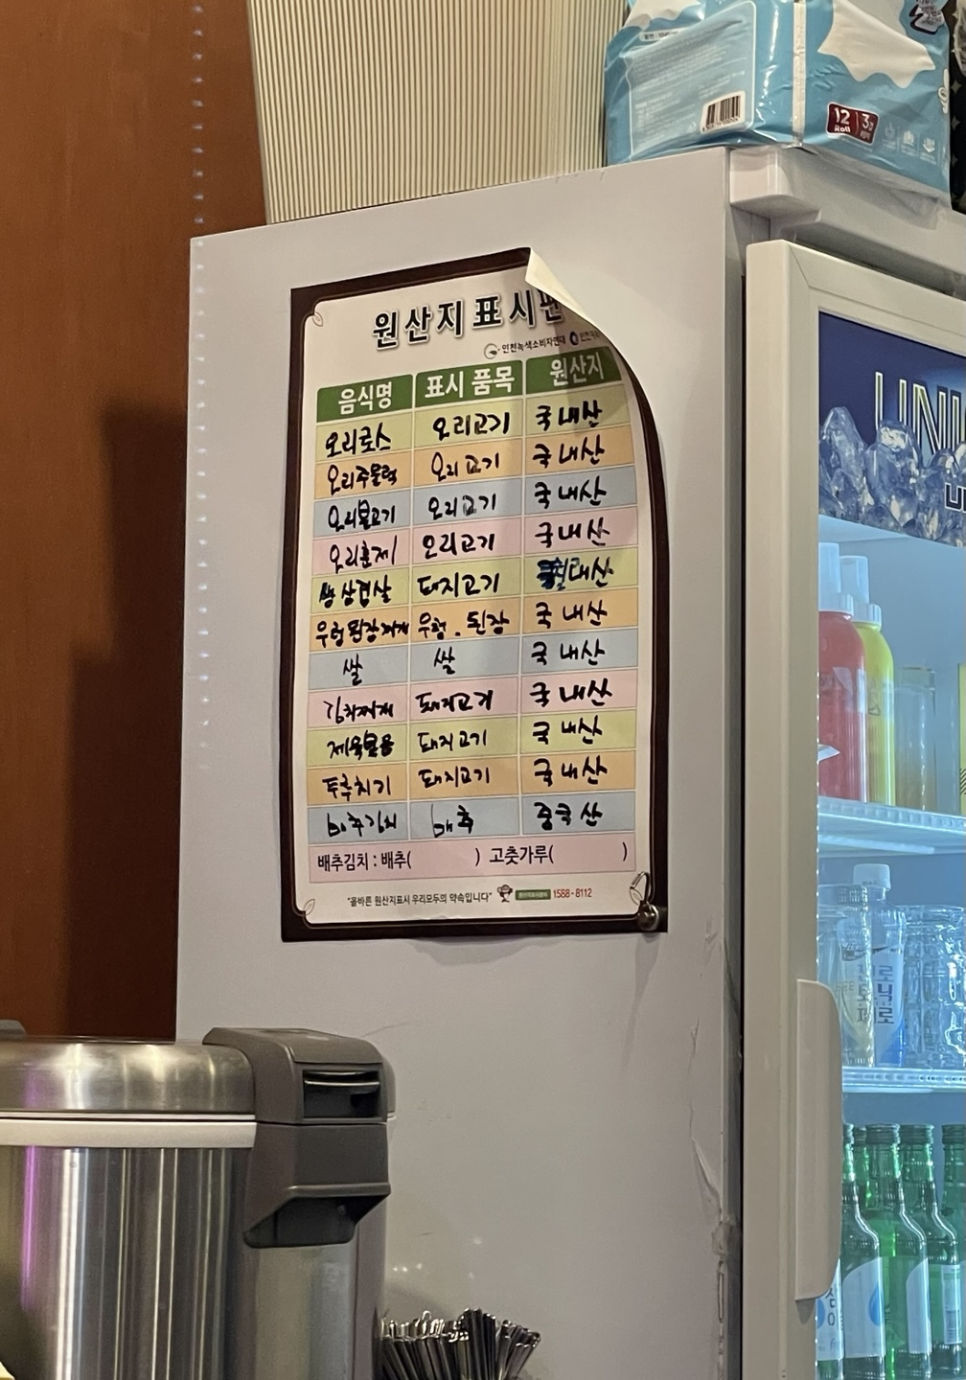 12 Roll
원산지 표시판
인천녹색소비자연대
음식명 표시 품목 원산지
오리로스 오리고기 국내산
오리주물럭 오리고기 국내산
오리불고기 오리고기 국내산
오리훈제 오리고기 국내산
생삼겹살 돼지고기 국내산
우렁된장찌개 우렁. 된장 국내산
쌀 쌀 국내산
김치찌개 돼지고기 국내산
제육볶음 돼지고기 국내산
두루치기 돼지고기 국내산
배추김치 배추 중국산
배추김치 : 배추( ) 고춧가루( )
"올바른 원산지표시 우리모두의 약속입니다" 1588-8112